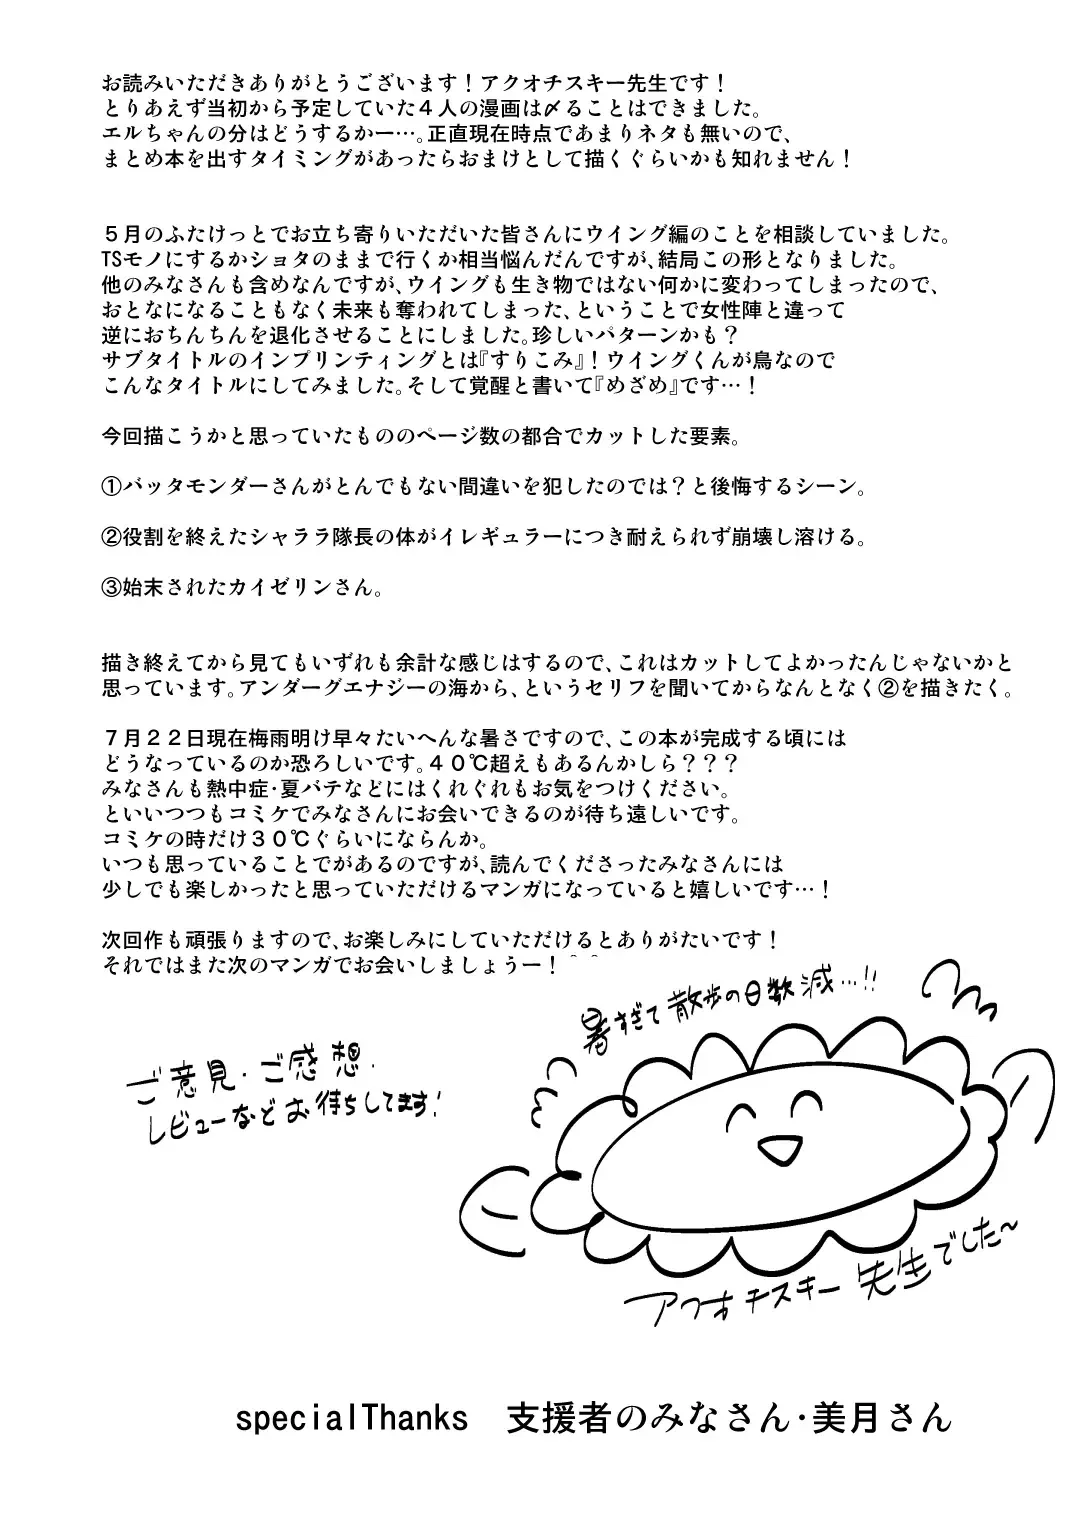 お読みいただきありがとうございます！アクオチスキー先生です！
とりあえず当初から予定していた４人の漫画は〆ることはできました。
エルちゃんの分はどうするかー…。正直現在時点であまりネタも無いので、
まとめ本を出すタイミングがあったらおまけとして描くぐらいかも知れません！
５月のふたけっとでお立ち寄りいただいた皆さんにウイング編のことを相談していました。
TSモノにするかショタのままで行くか相当悩んだんですが、結局この形となりました。
他のみなさんも含めなんですが、ウイングも生き物ではない何かに変わってしまったので、
おとなになることもなく未来も奪われてしまった、ということで女性陣と違って
逆におちんちんを退化させることにしました。珍しいパターンかも？
サブタイトルのインプリンティングとは『すりこみ』！ウイングくんが鳥なので
こんなタイトルにしてみました。そして覚醒と書いて『めざめ』です…！
今回描こうかと思っていたもののページ数の都合でカットした要素。
①バッタモンダーさんがとんでもない間違いを犯したのでは？と後悔するシーン。
②役割を終えたシャララ隊長の体がイレギュラーにつき耐えられず崩壊し溶ける。
③始末されたカイゼリンさん。
描き終えてから見てもいずれも余計な感じはするので、これはカットしてよかったんじゃないかと
思っています。アンダーグエナジーの海から、というセリフを聞いてからなんとなく②を描きたく。
７月２２日現在梅雨明け早々たいへんな暑さですので、この本が完成する頃には
どうなっているのか恐ろしいです。４０℃超えもあるんかしら？？？
みなさんも熱中症・夏バテなどにはくれぐれもお気をつけください。
といいつつもコミケでみなさんにお会いできるのが待ち遠しいです。
コミケの時だけ３０℃ぐらいにならんか。
いつも思っていることでがあるのですが、読んでくださったみなさんには
少しでも楽しかったと思っていただけるマンガになっていると嬉しいです…！
次回作も頑張りますので、お楽しみにしていただけるとありがたいです！
それではまた次のマンガでお会いしましょうー！＾＾
暑すぎて散歩の日数減…!!
ご意見・ご感想・
レビューなどお待ちしてます!
アクオチスキー先生でした～
specialThanks　支援者のみなさん・美月さん